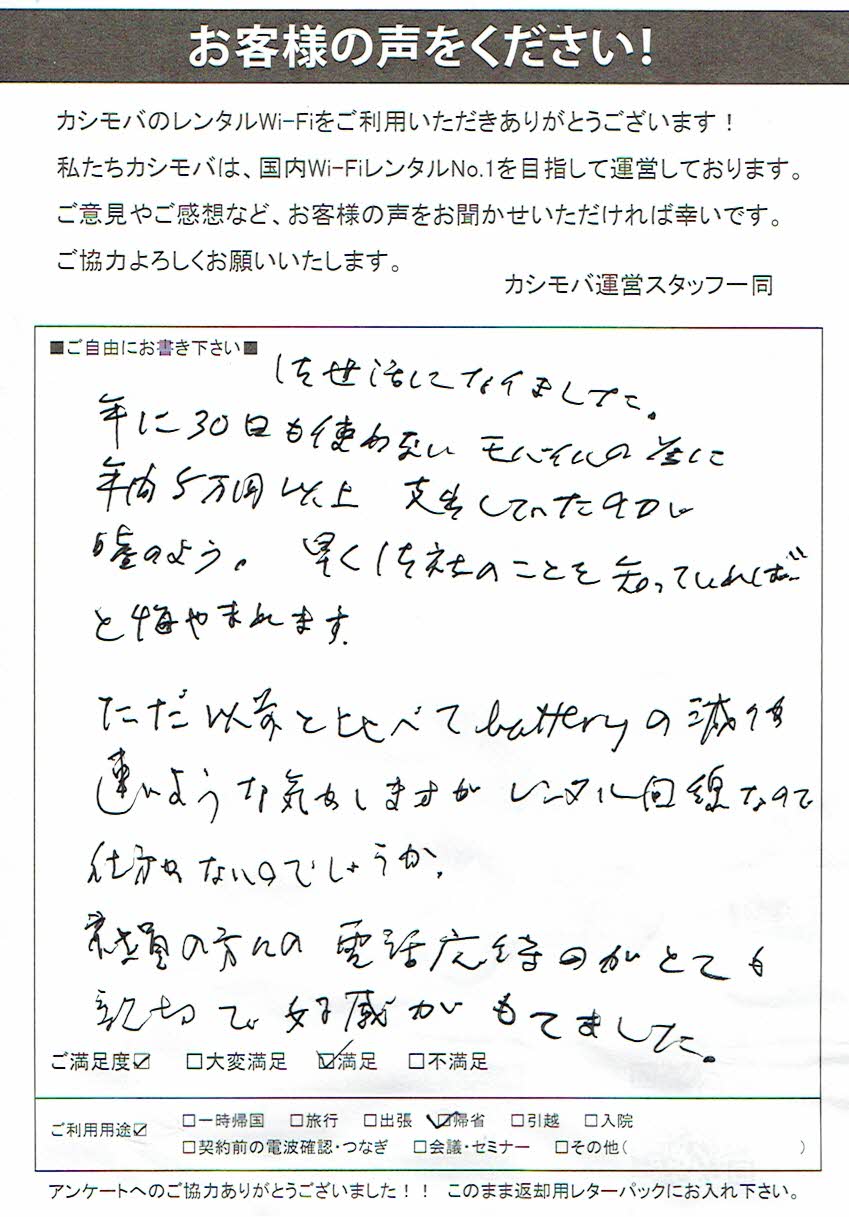 お客様の声をください!
カシモバのレンタルWi-Fiをご利用いただきありがとうございます！
私たちカシモバは、国内Wi-FiレンタルNo.1を目指して運営しております。
ご意見やご感想など、お客様の声をお聞かせいただければ幸いです。
ご協力よろしくお願いいたします。
カシモバ運営スタッフ一同
■ご自由にお書き下さい■
お世話になりました。
年に30日も使わない モバイルの為に
年間5万円以上 支出していたのが
嘘のよう。 早く御社のことを知っていれば
と悔やまれます.
ただ以前と比べてbatteryの減りが
速いような気がしますが レンタル回線なので
仕方がないのでしょうか。
の方の 電話応待のがとても
親切で 好感が もてました。
ご満足度☑ □大変満足 ☑満足 □不満足
ご利用用途☑ □一時帰国 □旅行 □出張 ☑帰省 □引越 □入院
□契約前の電波確認・つなぎ □会議・セミナー □その他( )
アンケートへのご協力ありがとうございました！！ このまま返却用レターパックにお入れ下さい。